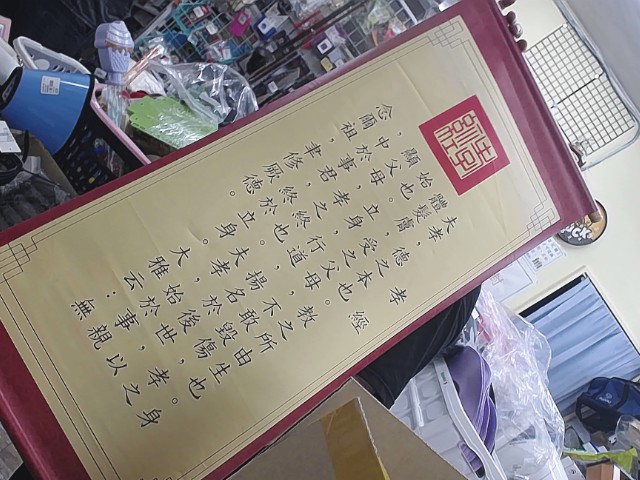 孝經
夫孝，德之本也，教之所由生也。身
體髮膚，受之父母，不敢毀傷，孝之
始也。立身行道，揚名於後世，以
顯父母，孝之終也。夫孝，始於事親
，中於事君，終於立身。大雅云：無
念爾祖，聿修厥德。